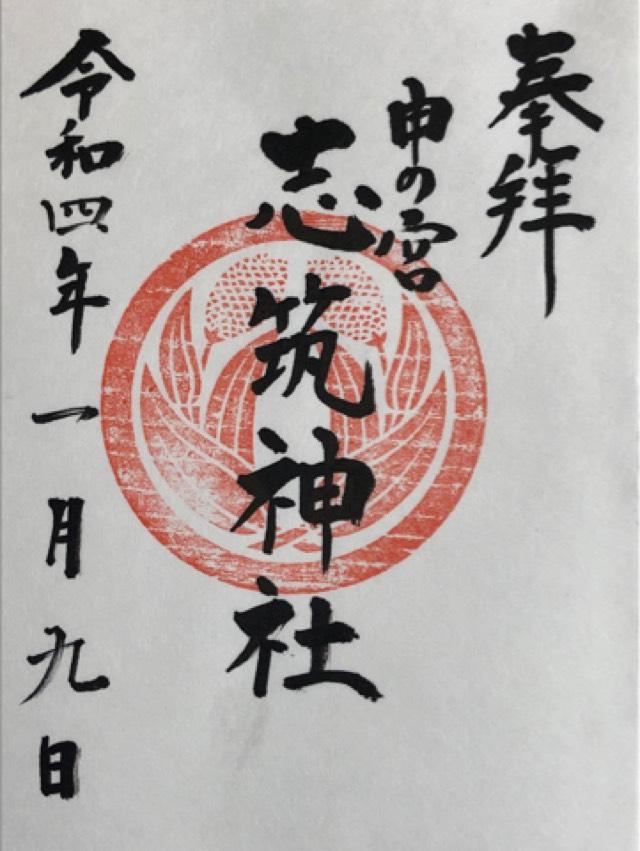 奉拝
申の宮
志筑神社
令和四年一月九日